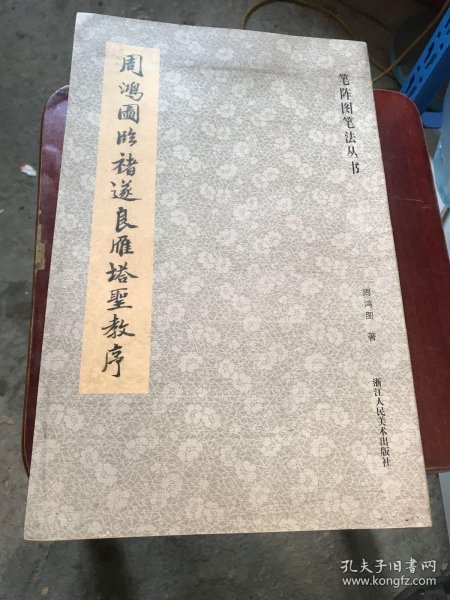 笔阵图笔法丛书
周鸿图临褚遂良雁塔聖教序
周鸿图 著
浙江人民美术出版社
孔夫子旧书网
www.kongfz.com